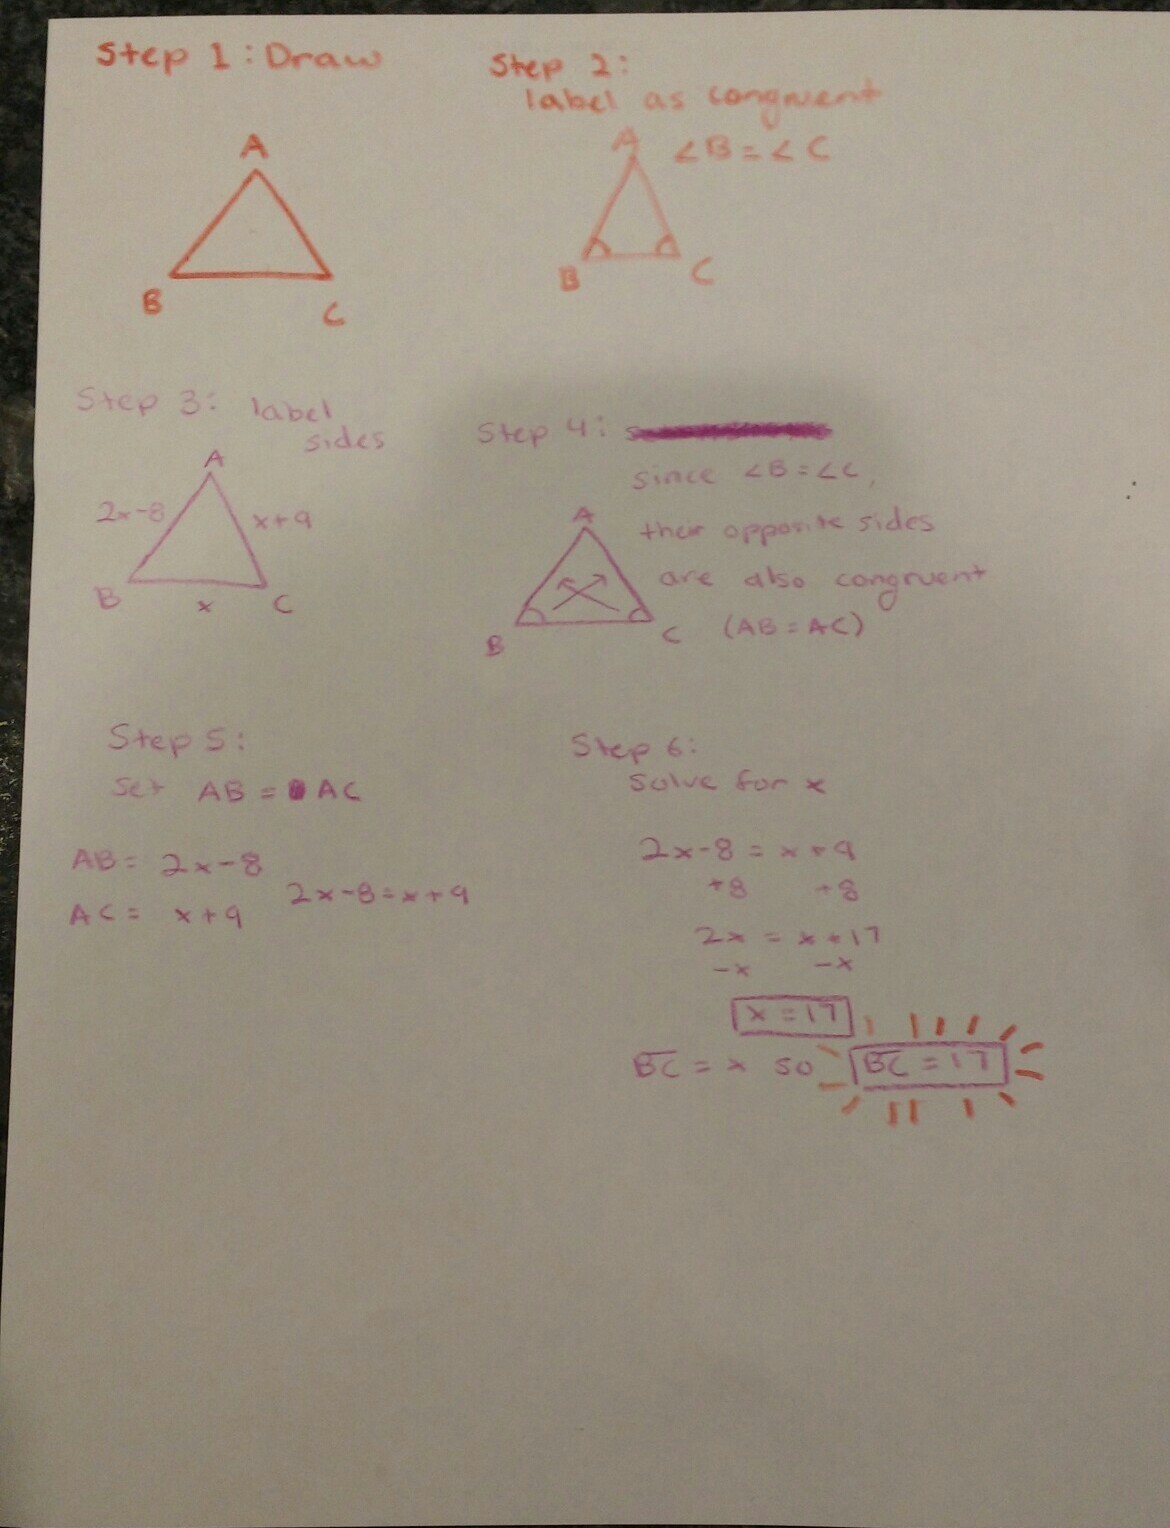 Step 1: Draw
A
B
C
Step 2:
label as congruent
A ∠B = ∠C
B
C
Step 3: label
sides
A
2x-8
x+9
B
x
C
Step 4:
since ∠B = ∠C,
their opposite sides
are also congruent
(AB = AC)
A
B
C
Step 5:
Set AB = AC
AB = 2x-8
AC = x+9
2x-8=x+9
Step 6:
Solve for x
2x-8 = x+9
+8 +8
2x = x+17
-x -x
x = 17
B̅C̅ = x so B̅C̅ = 17